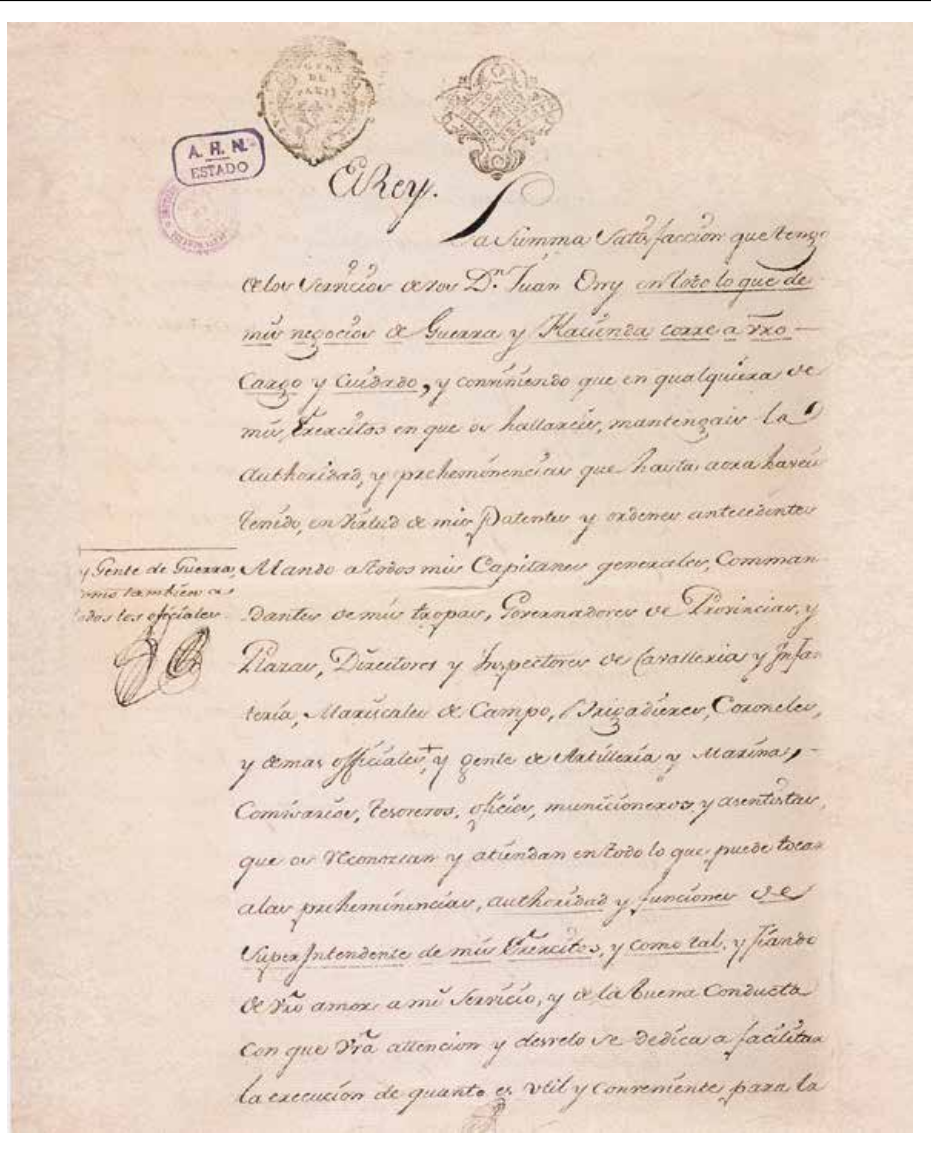 GENE
DE
PARIS
A. H. N.
ESTADO
El Rey.
La Summa Satisfaccion que tengo
de los Servicios de vos Dn. Juan Orry en todo lo que de
mis negocios de Guerra y Hacienda corre a vro
Cargo y Cuidado, y conviniendo que en qualquiera de
mis Exercitos en que os hallareis, mantengais la
Authoridad, y preheminencias que hasta aora haveis
tenido, en virtud de mis Patentes y ordenes antecedentes
Mando a todos mis Capitanes generales, Comman-
dantes de mis tropas, Governadores de Provincias, y
Plazas, Directores y Inspectores de Cavalleria y Infan
teria, Mariscales de Campo, Brigadieres, Coroneles,
y demas officiales + y gente de Artilleria y Marina,
Comisarios, tesoreros, oficios, municioneros, y asentistas,
que os Reconozcan y atiendan en todo lo que puede tocar
a las preheminencias, authoridad y funciones de
SuperIntendente de mis Exercitos, y como tal, y fiando
de vro amor a mi Servicio, y de la buena Conducta
con que vra attencion y desvelo se dedica a facilitar
la execucion de quanto es util y conveniente para la
y Gente de Guerra,
como tambien a
todos los oficiales